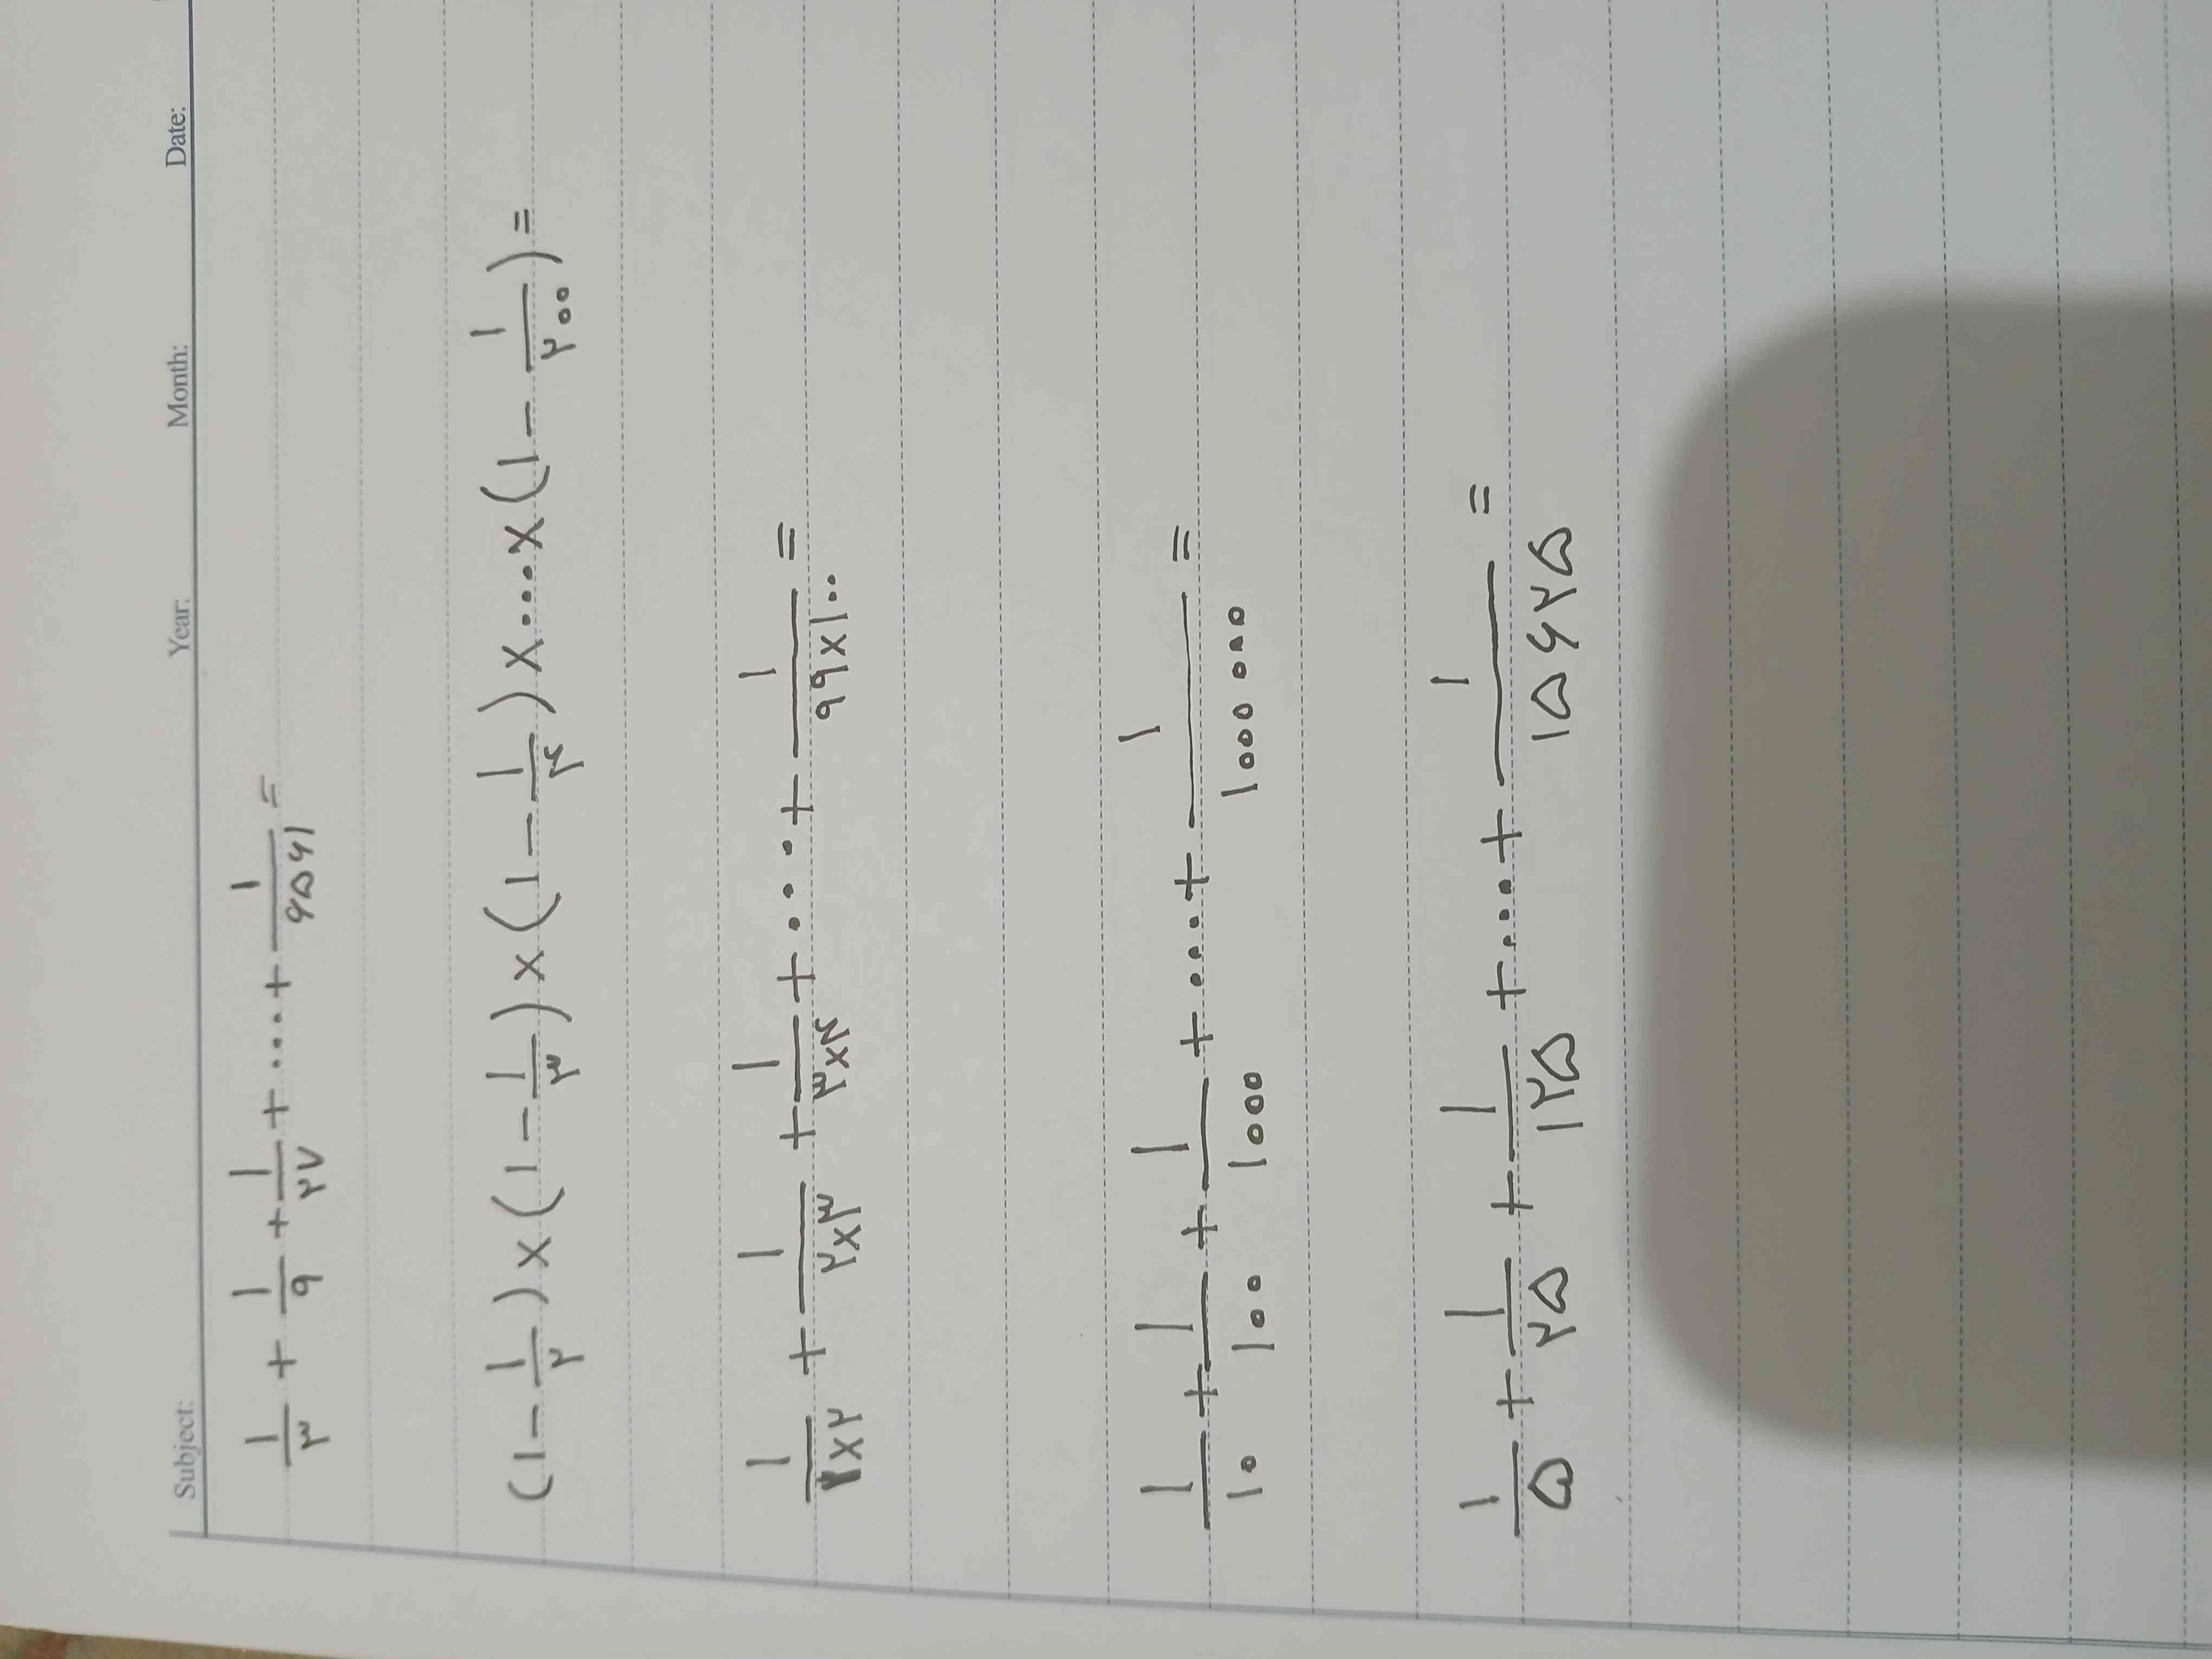 Subject: Year: Month: Date:
۱/۳ + ۱/۹ + ۱/۲۷ + .... + ۱/۶۵۶۱ =
(۱ - ۱/۲) × (۱ - ۱/۳) × (۱ - ۱/۴) × .... × (۱ - ۱/۲۰۰) =
۱/۱×۲ + ۱/۲×۳ + ۱/۳×۴ + .... + ۱/۹۹×۱۰۰ =
۱/۱۰ + ۱/۱۰۰ + ۱/۱۰۰۰ + .... + ۱/۱۰۰۰۰۰۰ =
۱/۵ + ۱/۲۵ + ۱/۱۲۵ + .... + ۱/۱۵۶۲۵ =